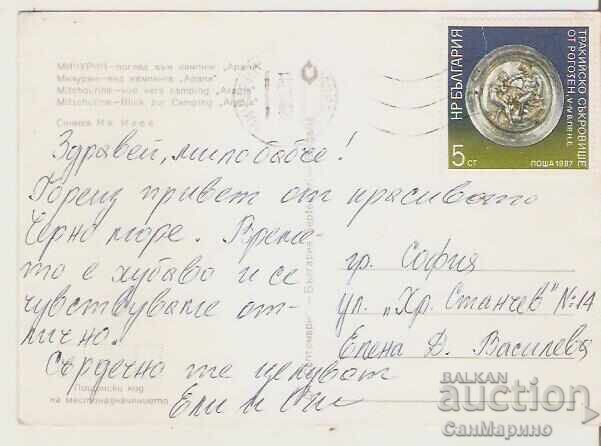 МИЧУРИН – поглед към къмпинг „Арапя“
Мичурин – вид кемпинга „Арапя“
Mitchourine – vue vers camping „Arapia“
Mitschurine – Blick zur Camping „Arapia“
Снимка
Здравей, мило бабче!
Горещ привет от красивото
Черно море. Време-
то е хубаво и се
чувствуваме от-
лично.
Сърдечно те целуват
Ели и
НР БЪЛГАРИЯ
5 СТ
ПОЩА 1987
ТРАКИЙСКО СЪКРОВИЩЕ
ОТ РОГОЗЕН, V-IV В. ПР. Н. Е.
гр. София
ул. „Хр. Станчев“ № 14
Елена Д. Василева
Пощенски код
на местоназначението
BALKAN
auction
СанМарино